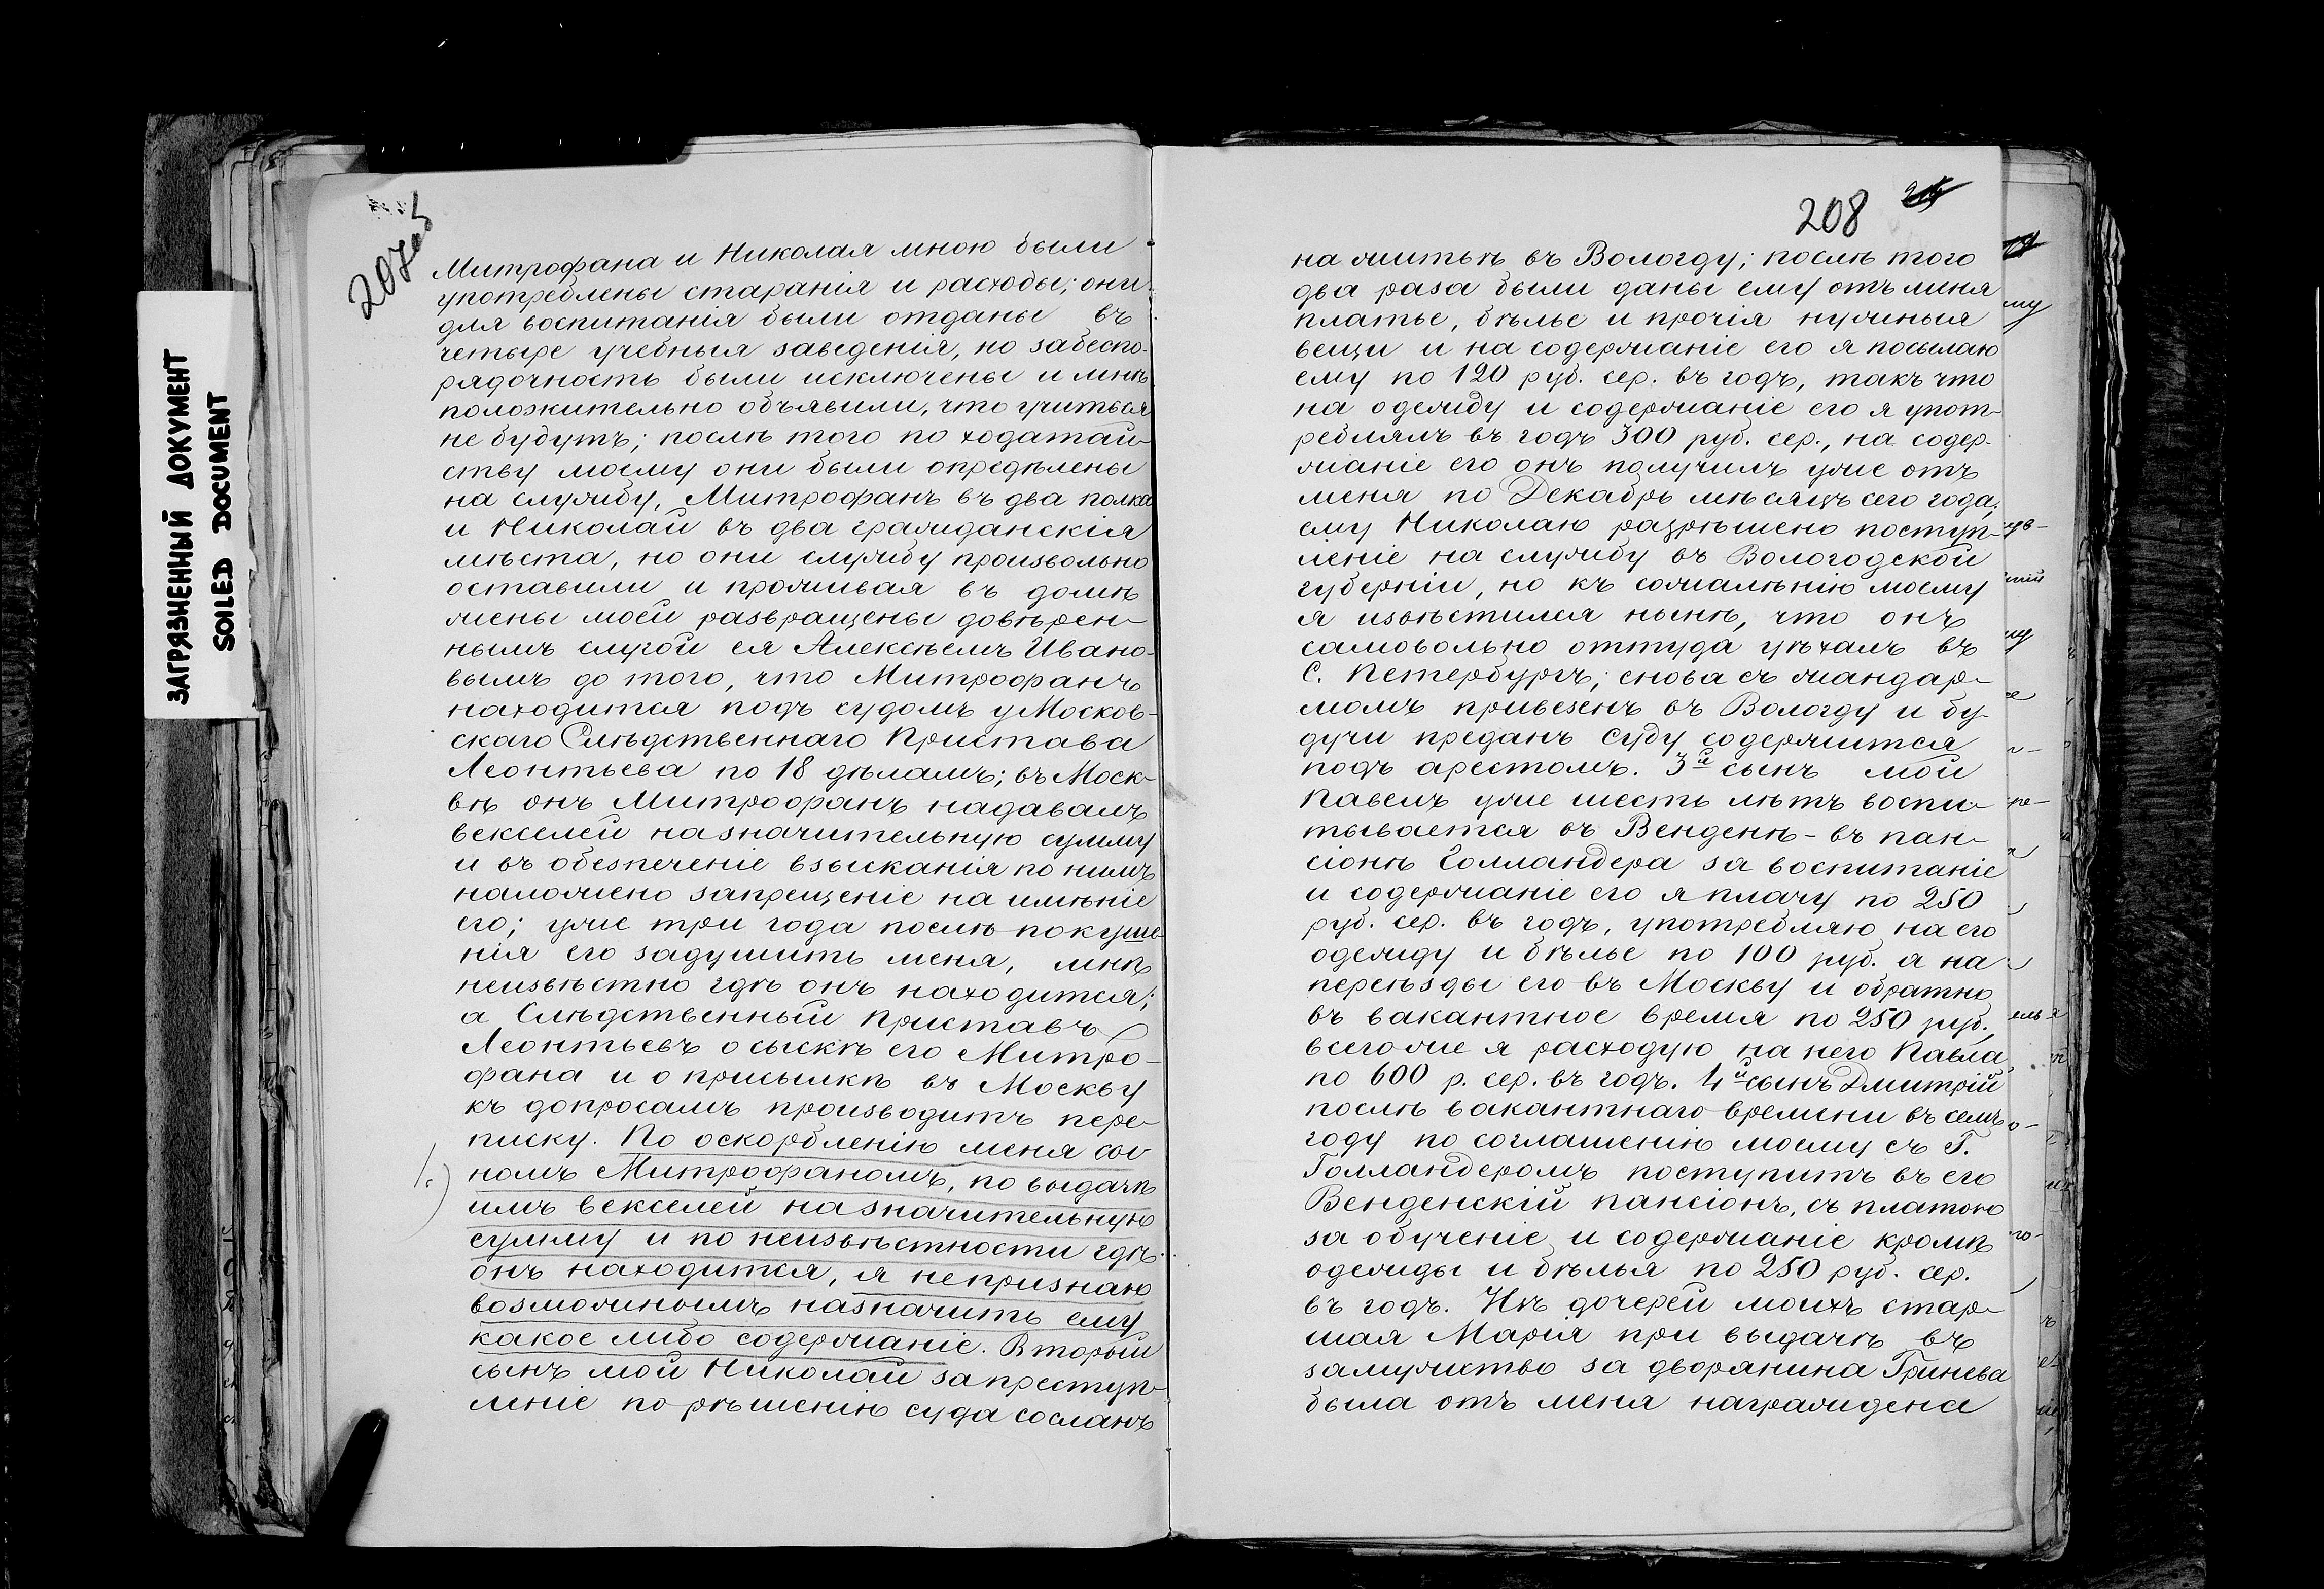 ЗАГРЯЗНЕННЫЙ ДОКУМЕНТ
SOILED DOCUMENT
207об
Митрофана и Николая мною были
употреблены старанія и расходы; они
для воспитанія были отданы въ
четыре учебныя заведенія, но за беспо-
рядочность были исключены и мнѣ
положительно объявили, что учиться
не будутъ; послѣ того по ходатай-
ству моему они были опредѣлены
на службу, Митрофанъ въ два полка
и Николай въ два гражданскія
мѣста, но они службу произвольно
оставили и проживая въ домѣ
жены моей развращены довѣрен-
нымъ слугой ея Алексѣемъ Ивано-
вымъ до того, что Митрофанъ
находится подъ судомъ у Москов-
скаго Слѣдственнаго Пристава
Леонтьева по 18 дѣламъ; въ Моск-
вѣ онъ Митрофанъ надавалъ
векселей на значительную сумму
и въ обезпеченіе взысканія по нимъ
наложено запрещеніе на имѣніе
его; уже три года послѣ покуше-
нія его задушить меня, мнѣ
неизвѣстно гдѣ онъ находится;
а Слѣдственный Приставъ
Леонтьевъ о сыскѣ его Митро-
фана и о присылкѣ въ Москву
къ допросамъ производитъ пере-
писку. По оскорбленію меня сы-
1.) номъ Митрофаномъ, по выдачѣ
имъ векселей на значительную
сумму и по неизвѣстности гдѣ
онъ находится, я не признаю
возможнымъ назначить ему
какое либо содержаніе. Второй
сынъ мой Николай за преступ-
леніе по рѣшенію суда сосланъ
208
на житье въ Вологду; послѣ того
два раза были даны ему отъ меня
платье, бѣлье и прочія нужныя
вещи и на содержаніе его я посылаю
ему по 120 руб. сер. въ годъ, такъ что
на одежду и содержаніе его я упот-
реблялъ въ годъ 300 руб. сер., на содер-
жаніе его онъ получилъ уже отъ
меня по Декабрь мѣсяцъ сего года;
ему Николаю разрѣшено поступ-
леніе на службу въ Вологодской
губерніи, но къ сожалѣнію моему
я извѣстился нынѣ, что онъ
самовольно оттуда уѣхалъ въ
С. Петербургъ; снова съ жандар-
момъ привезенъ въ Вологду и бу-
дучи преданъ суду содержится
подъ арестомъ. 3й сынъ мой
Павелъ уже шесть лѣтъ воспи-
тывается въ Венденѣ - въ пан-
сіонѣ Голландера за воспитаніе
и содержаніе его я плачу по 250
руб. сер. въ годъ, употребляю на его
одежду и бѣлье по 100 руб. а на
переѣзды его въ Москву и обратно
въ вакантное время по 250 руб.,
всего же я расходую на него Павла
по 600 р. сер. въ годъ. 4й сынъ Дмитрій
послѣ вакантнаго времени въ семъ
году по соглашенію моему съ Г.
Голландеромъ поступитъ въ его
Венденскій пансіонъ, съ платою
за обученіе и содержаніе кромѣ
одежды и бѣлья по 250 руб. сер.
въ годъ. Изъ дочерей моихъ стар-
шая Марія при выдачѣ въ
замужство за дворянина Гринева
была отъ меня награждена